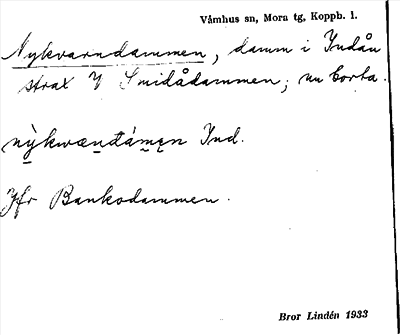 Våmhus sn, Mora tg, Koppb. l.
Nykvarndammen, damm i Indån
strax V Smidådammen; nu borta.
nỳkwæṇdámẹn Ind.
Jfr Bankodammen.
Bror Lindén 1933